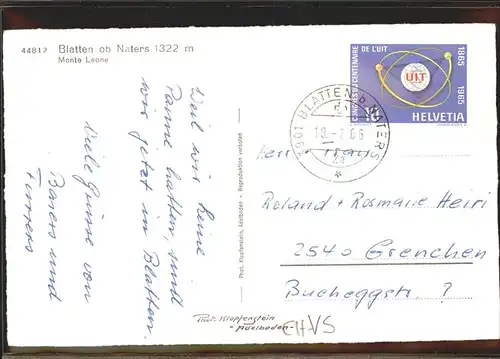 44812 Blatten ob Naters 1322 m
Monte Leone
Weil wir keine
Panne hatten, sind
wir jetzt in Blatten.
Viele Grüsse von
und
Furrers
Phot. Klopfenstein, Adelboden - Reproduktion verboten
Phot. Klopfenstein
- Adelboden -
CENTENAIRE
DE L'UIT
1865
1965
UIT
HELVETIA
3901 BLATTEN b. NATERS
Herrn
Roland + Rosmarie Heiri
2540 Grenchen
Bucheggstr. ?
CHVS